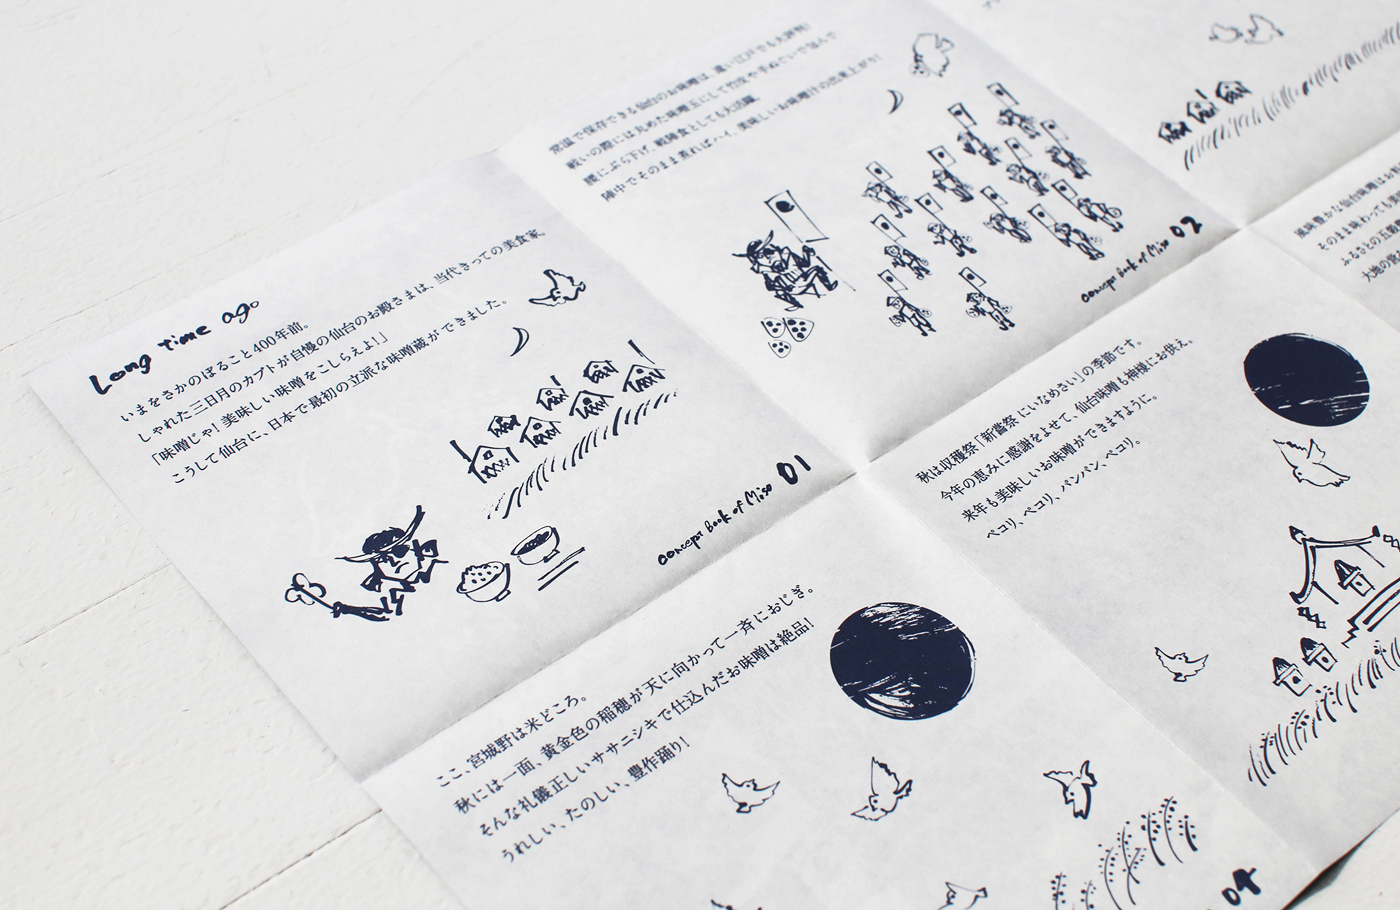 Long time ago
いまをさかのぼること400年前。
しゃれた三日月のカブトが自慢の仙台のお殿さまは、当代きっての美食家。
「味噌じゃ! 美味しい味噌をこしらえよ!」
こうして仙台に、日本で最初の立派な味噌蔵ができました。
concept Book of Miso 01
常温で保存できる仙台のお味噌は、遠い江戸でも大評判!
戦いの際には丸めた味噌玉にして竹皮や手ぬぐいで包んで
腰にぶら下げ、戦陣食としても大活躍。
陣中でそのまま煮ればハイ、美味しいお味噌汁の出来上がり!
concept Book of Miso 02
ここ、宮城野は米どころ。
秋には一面、黄金色の稲穂が天に向かって一斉におじぎ。
そんな礼儀正しいササニシキで仕込んだお味噌は絶品!
うれしい、たのしい、豊作踊り!
04
秋は収穫祭「新嘗祭 にいなめさい」の季節です。
今年の恵みに感謝をよせて、仙台味噌も神様にお供え。
来年も美味しいお味噌ができますように。
ペコリ、ペコリ、パンパン、ペコリ。
風味豊かな仙台味噌はお
そのまま味わっても
ふるさとの五
大地の